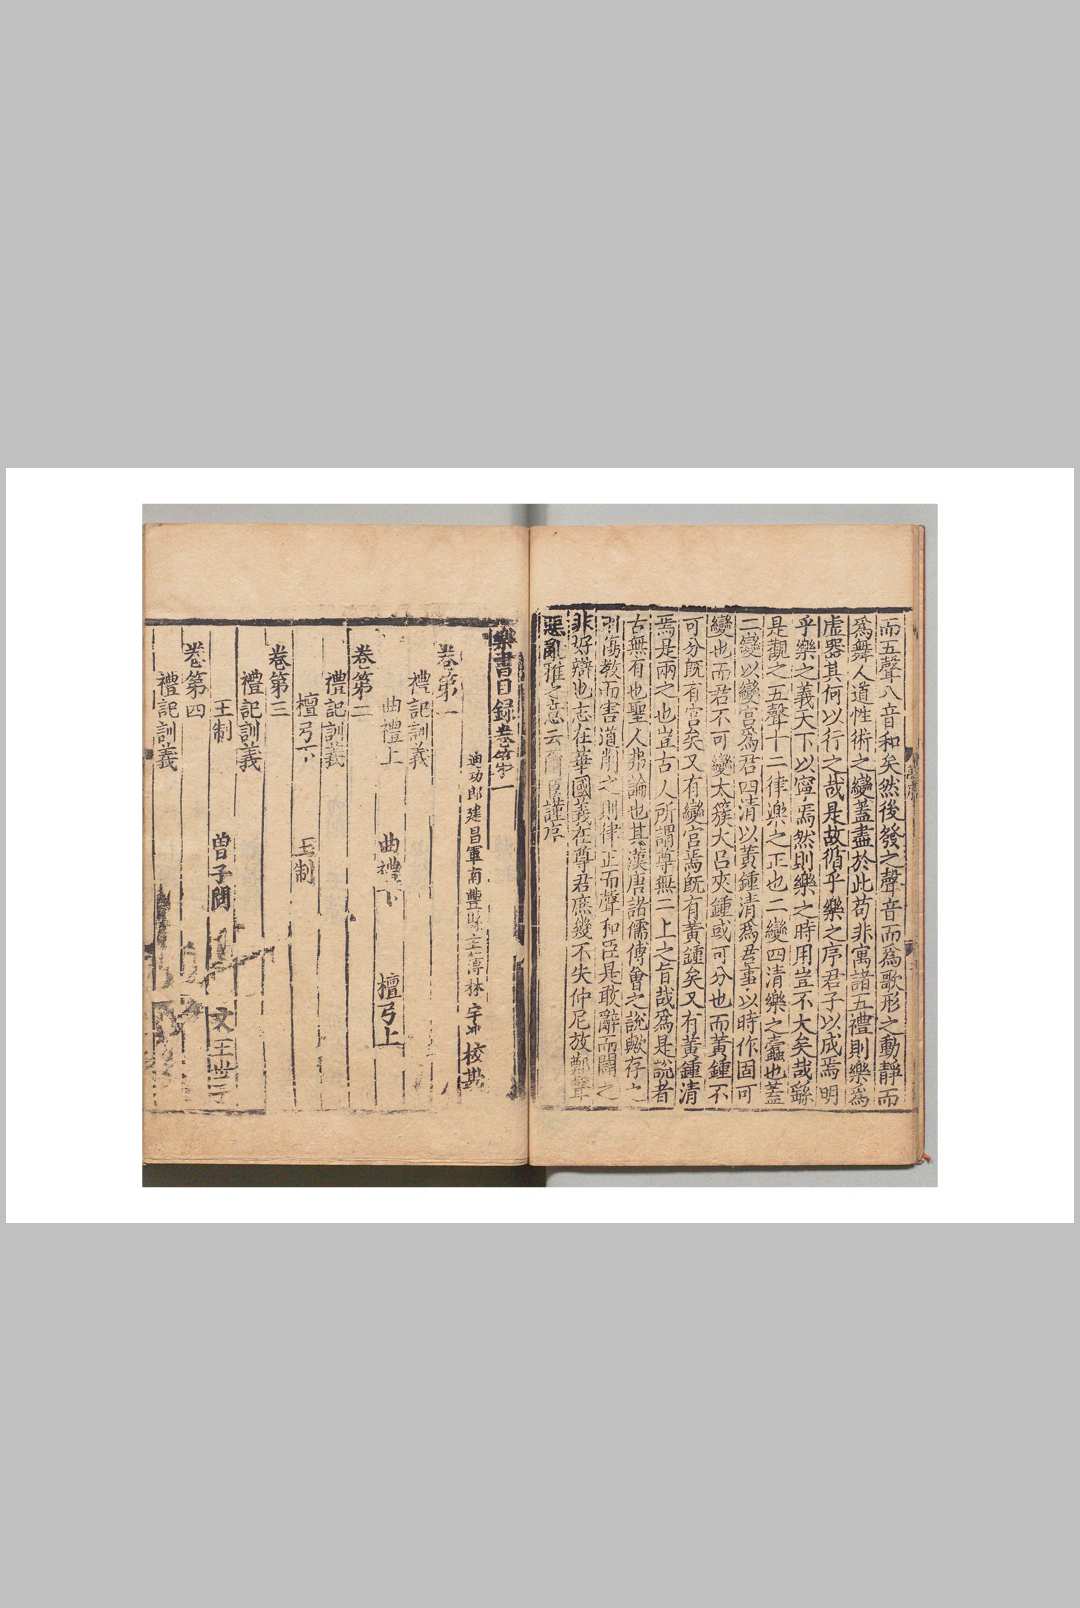 而五聲八音和矣然後發之聲音而爲歌形之動靜而
爲舞人道性術之變蓋盡於此苟非寓諸五禮則樂爲
虛器其何以行之哉是故循乎樂之序君子以成焉明
乎樂之義天下以寧焉然則樂之時用豈不大矣哉繇
是觀之五聲十二律樂之正也二變四清樂之蠹也蓋
二變以變宮爲君四清以黃鍾清爲君事以時作固可
變也而君不可變太簇大呂夾鍾或可分也而黃鍾不
可分旣有宮矣又有變宮焉旣有黃鍾矣又有黃鍾清
焉是兩之也豈古人所謂尊無二上之旨哉爲是說者
古無有也聖人弗論也其漢唐諸儒傅會之說歟存之
則傷教而害道削之則律正而聲和臣是敢辭而闢之
非好辯也志在華國義在尊君庶幾不失仲尼放鄭聲
惡亂雅之意云爾臣謹序
樂書目錄卷第一
迪功郎建昌軍南豐縣主簿林宇冲校勘
卷第一
禮記訓義
曲禮上 曲禮下 檀弓上
卷第二
禮記訓義
檀弓下 王制
卷第三
禮記訓義
王制 曾子問 文王世子
卷第四
禮記訓義